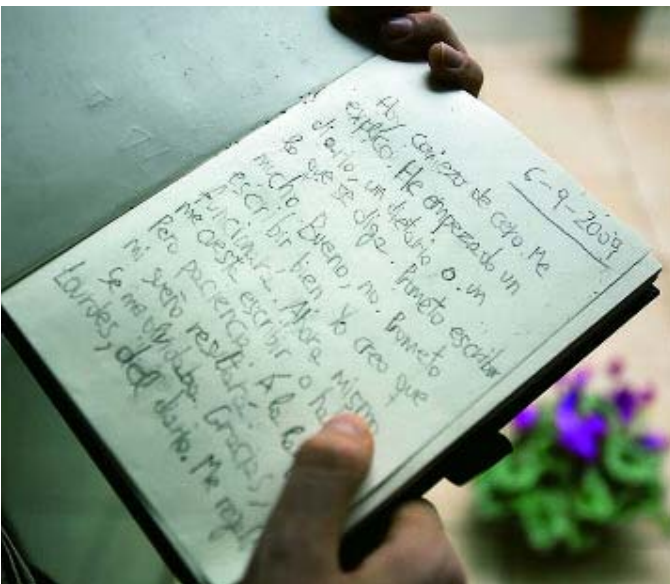 6-9-2009
Hoy comienzo de cero. Me
explico. He empezado un
diario, un dietario o un
lo que se diga. Prometo escribir
mucho. Bueno, no. Prometo
escribir bien. Yo creo que
funcionará. Ahora mismo
me cuesta escribir o
Pero paciencia. A la
mi sueño resultará.
Se me olvidaba. Gracias,
Lourdes, del diario. Me